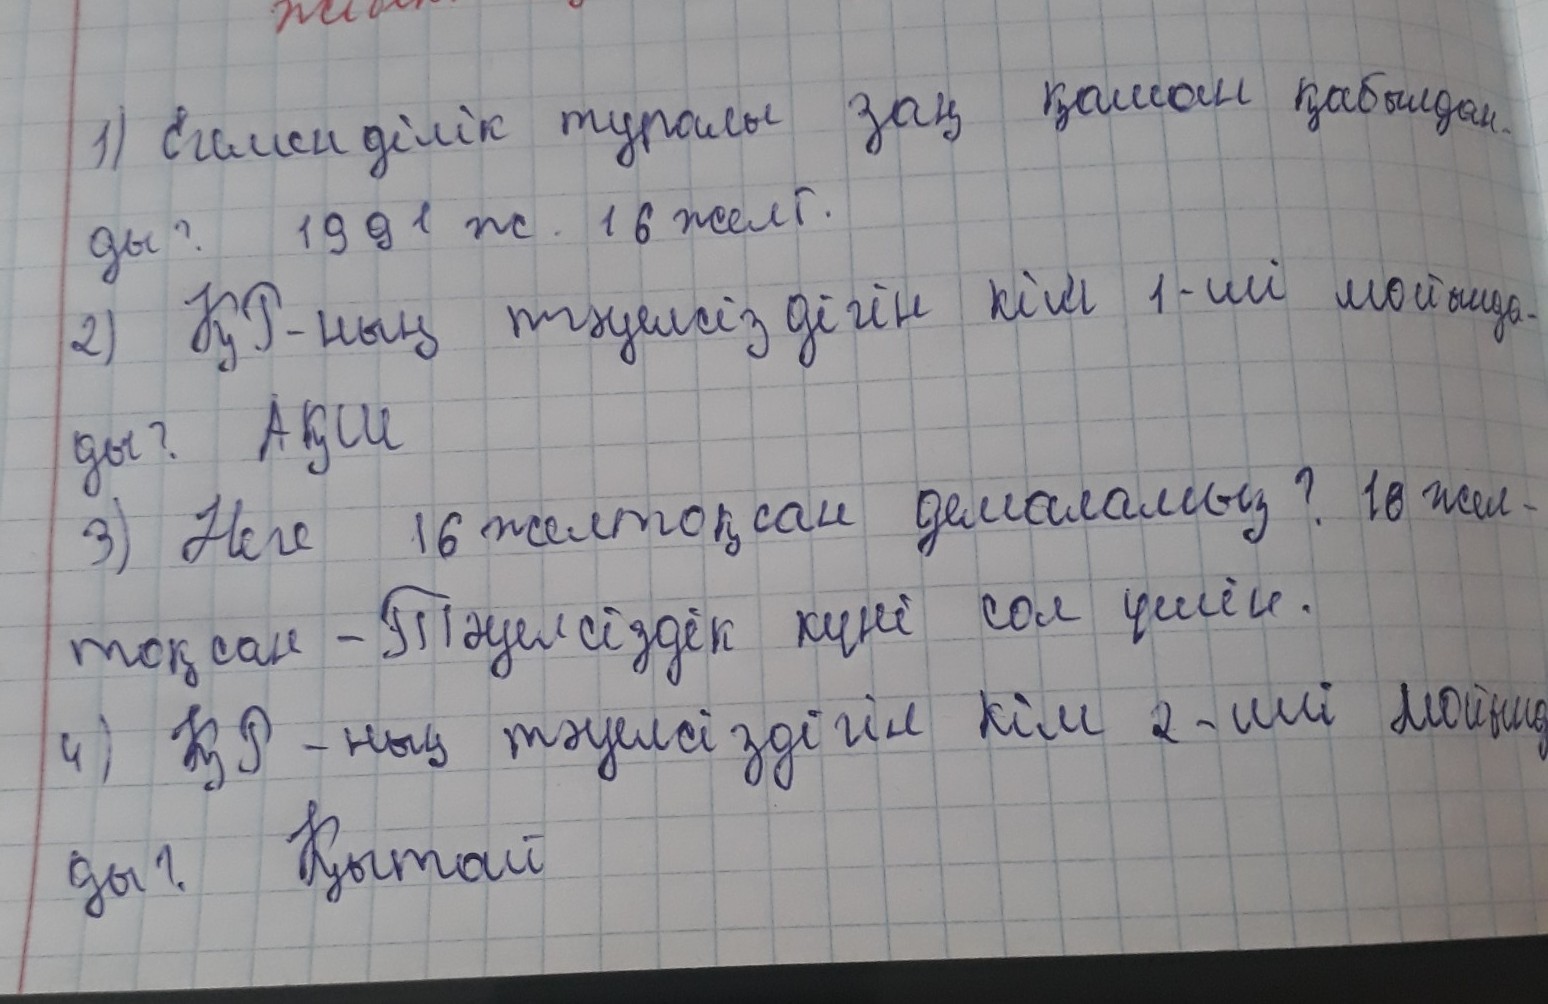 1) Егеменділік туралы заң қашан қабылдан-
ды? 1991 ж. 16 желт.
2) ҚР-ның тәуелсіздігін кім 1-ші мойында-
ды? АҚШ
3) Неге 16 желтоқсан демаламыз? 16 жел-
тоқсан - Тәуелсіздік күні сол үшін.
4) ҚР-ның тәуелсіздігін кім 2-ші мойынд
ды? Қытай